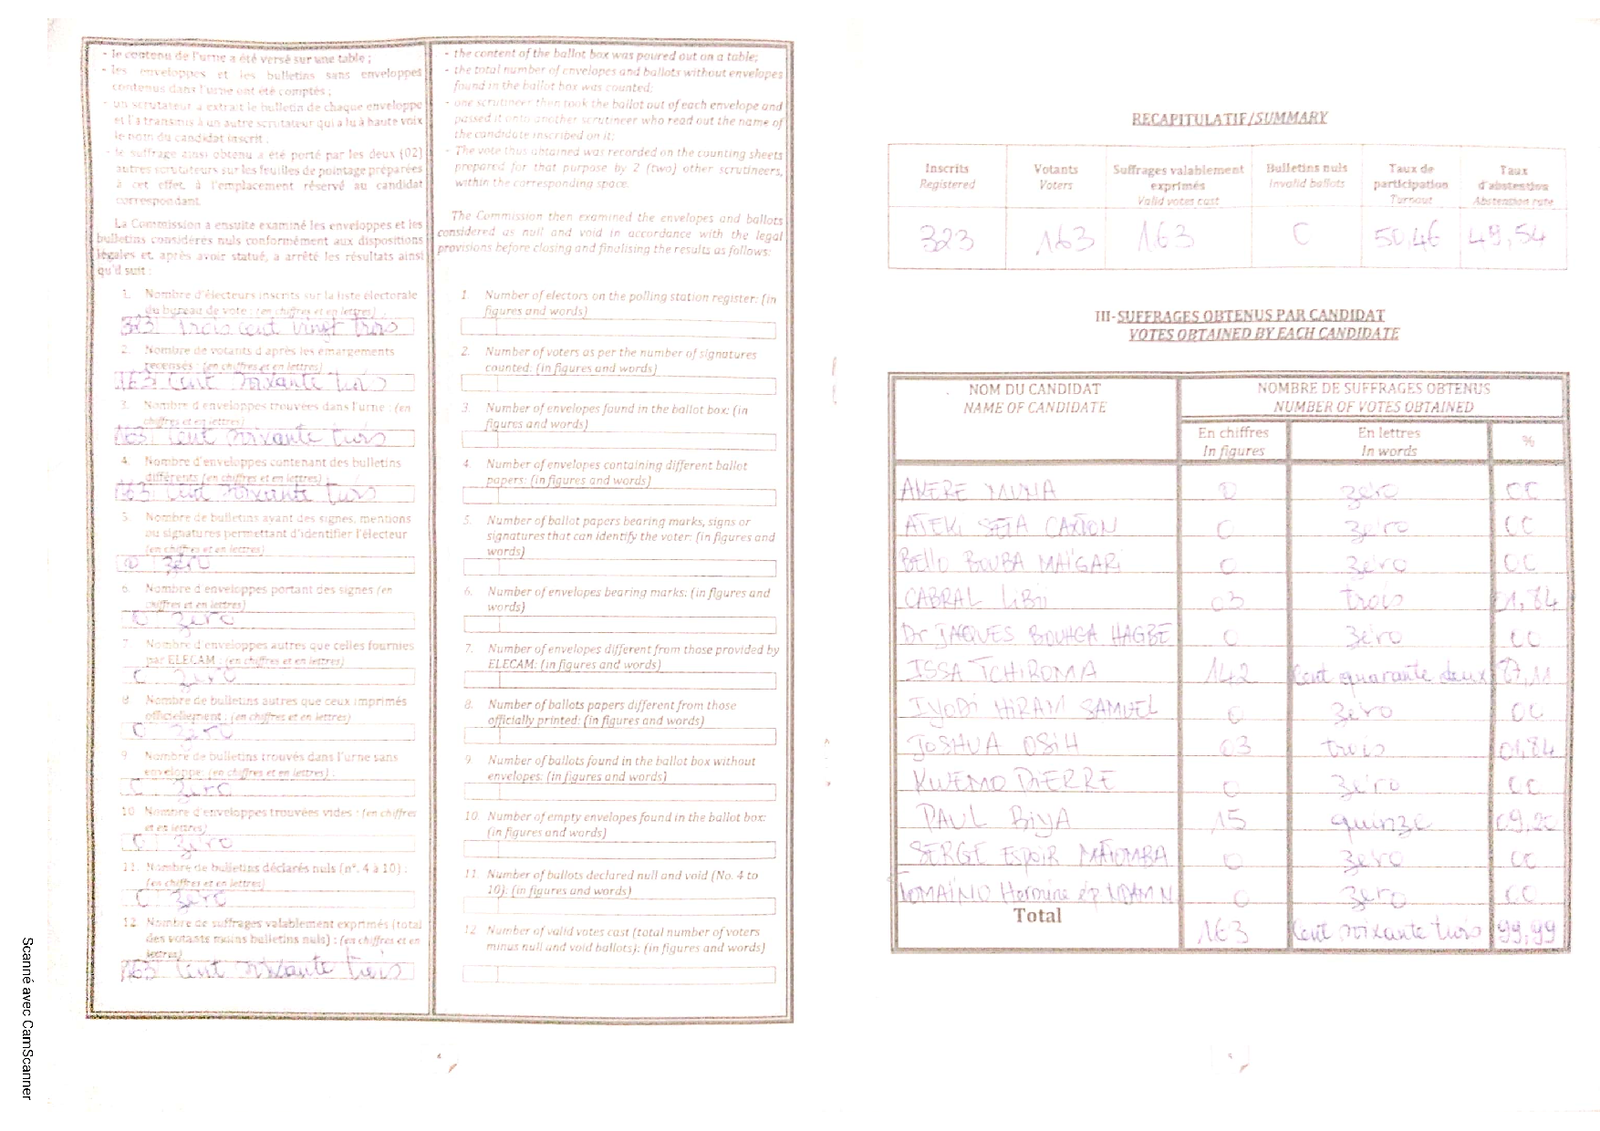 - le contenu de l'urne a été versé sur une table ;
- les enveloppes et les bulletins sans enveloppes
contenus dans l'urne ont été comptés ;
- un scrutateur a extrait le bulletin de chaque enveloppe
et l'a transmis à un autre scrutateur qui a lu à haute voix
le nom du candidat inscrit ;
- le suffrage ainsi obtenu a été porté par les deux (02)
autres scrutateurs sur les feuilles de pointage préparées
à cet effet, à l'emplacement réservé au candidat
correspondant.
La Commission a ensuite examiné les enveloppes et les
bulletins considérés nuls conformément aux dispositions
légales et, après avoir statué, a arrêté les résultats ainsi
qu'il suit :
1. Nombre d'électeurs inscrits sur la liste électorale
du bureau de vote : (en chiffres et en lettres)
323 Trois cent vingt trois
2. Nombre de votants d'après les émargements
recensés : (en chiffres et en lettres)
163 cent soixante trois
3. Nombre d'enveloppes trouvées dans l'urne : (en
chiffres et en lettres)
163 cent soixante trois
4. Nombre d'enveloppes contenant des bulletins
différents (en chiffres et en lettres)
163 cent soixante trois
5. Nombre de bulletins ayant des signes, mentions
ou signatures permettant d'identifier l'électeur
(en chiffres et en lettres)
0 zéro
6. Nombre d'enveloppes portant des signes (en
chiffres et en lettres)
0 zéro
7. Nombre d'enveloppes autres que celles fournies
par ELECAM : (en chiffres et en lettres)
0 zéro
8. Nombre de bulletins autres que ceux imprimés
officiellement : (en chiffres et en lettres)
0 zéro
9. Nombre de bulletins trouvés dans l'urne sans
enveloppe: (en chiffres et en lettres) :
0 zéro
10. Nombre d'enveloppes trouvées vides : (en chiffres
et en lettres)
0 zéro
11. Nombre de bulletins déclarés nuls (n°. 4 à 10) :
(en chiffres et en lettres)
0 zéro
12. Nombre de suffrages valablement exprimés (total
des votants moins bulletins nuls) : (en chiffres et en
lettres)
163 cent soixante trois
- the content of the ballot box was poured out on a table;
- the total number of envelopes and ballots without envelopes
found in the ballot box was counted;
- one scrutineer then took the ballot out of each envelope and
passed it onto another scrutineer who read out the name of
the candidate inscribed on it;
- The vote thus obtained was recorded on the counting sheets
prepared for that purpose by 2 (two) other scrutineers,
within the corresponding space.
The Commission then examined the envelopes and ballots
considered as null and void in accordance with the legal
provisions before closing and finalising the results as follows:
1. Number of electors on the polling station register: (in
figures and words)
2. Number of voters as per the number of signatures
counted: (in figures and words)
3. Number of envelopes found in the ballot box: (in
figures and words)
4. Number of envelopes containing different ballot
papers: (in figures and words)
5. Number of ballot papers bearing marks, signs or
signatures that can identify the voter: (in figures and
words)
6. Number of envelopes bearing marks: (in figures and
words)
7. Number of envelopes different from those provided by
ELECAM: (in figures and words)
8. Number of ballots papers different from those
officially printed: (in figures and words)
9. Number of ballots found in the ballot box without
envelopes: (in figures and words)
10. Number of empty envelopes found in the ballot box:
(in figures and words)
11. Number of ballots declared null and void (No. 4 to
10): (in figures and words)
12. Number of valid votes cast (total number of voters
minus null and void ballots): (in figures and words)
RECAPITULATIF/SUMMARY
Inscrits Votants Suffrages valablement Bulletins nuls Taux de Taux
Registered Voters exprimés Invalid ballots participation d'abstention
Valid votes cast Turnout Abstention rate
323 163 163 0 50,46 49,54
III-SUFFRAGES OBTENUS PAR CANDIDAT
VOTES OBTAINED BY EACH CANDIDATE
NOM DU CANDIDAT NOMBRE DE SUFFRAGES OBTENUS
NAME OF CANDIDATE NUMBER OF VOTES OBTAINED
En chiffres En lettres %
In figures In words
AKERE MUNA 0 zéro 00
ATEKI SETA CAXTON 0 zéro 00
Bello BOUBA MAÏGARI 0 zéro 00
CABRAL LiBii 03 trois 01,84
Dr JACQUES BOUHGA HAGBE 0 zéro 00
ISSA TCHIROMA 142 Cent quarante deux 87,11
IYODI HiRAM SAMUEL 0 zéro 00
JOSHUA OSIH 03 trois 01,84
KWEMO PIERRE 0 zéro 00
PAUL BiYA 15 quinze 09,20
SERGE ESPOIR MATOMBA 0 zéro 00
TOMAINO Hermine ép NDAM N 0 zéro 00
Total 163 Cent soixante trois 99,99
Scanné avec CamScanner